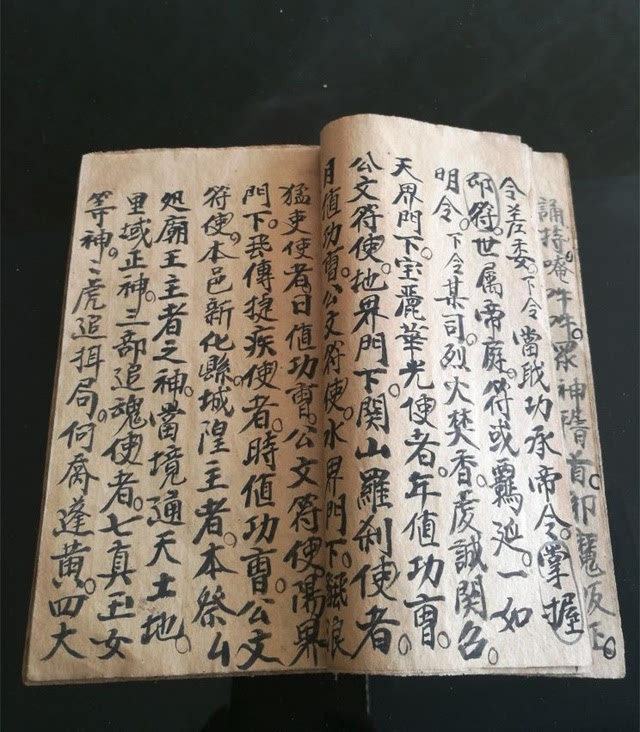 誦持唵吽吽。眾神首魔皈正。
令差委。下令當职功承帝令。掌握
印符。世属帝庭。符或羈延。一如
明令。下令某司。烈火焚香。虔誠関召
天界門下。宝麗華光使者。年值功曹。
公文符使。地界門下。関山羅刹使者
月值功曹。公文符使。水界門下。浪
猛吏使者。日值功曹。公文符使。陽界
門下。飛傳捷疾使者。時值功曹。公文
符使。本邑新化縣城隍主者。本祭厶
処廟王主者之神。當境通天土地。
里域正神。三部追魂使者。七真玉女
等神。二虎追局。何喬蓬黄。四大